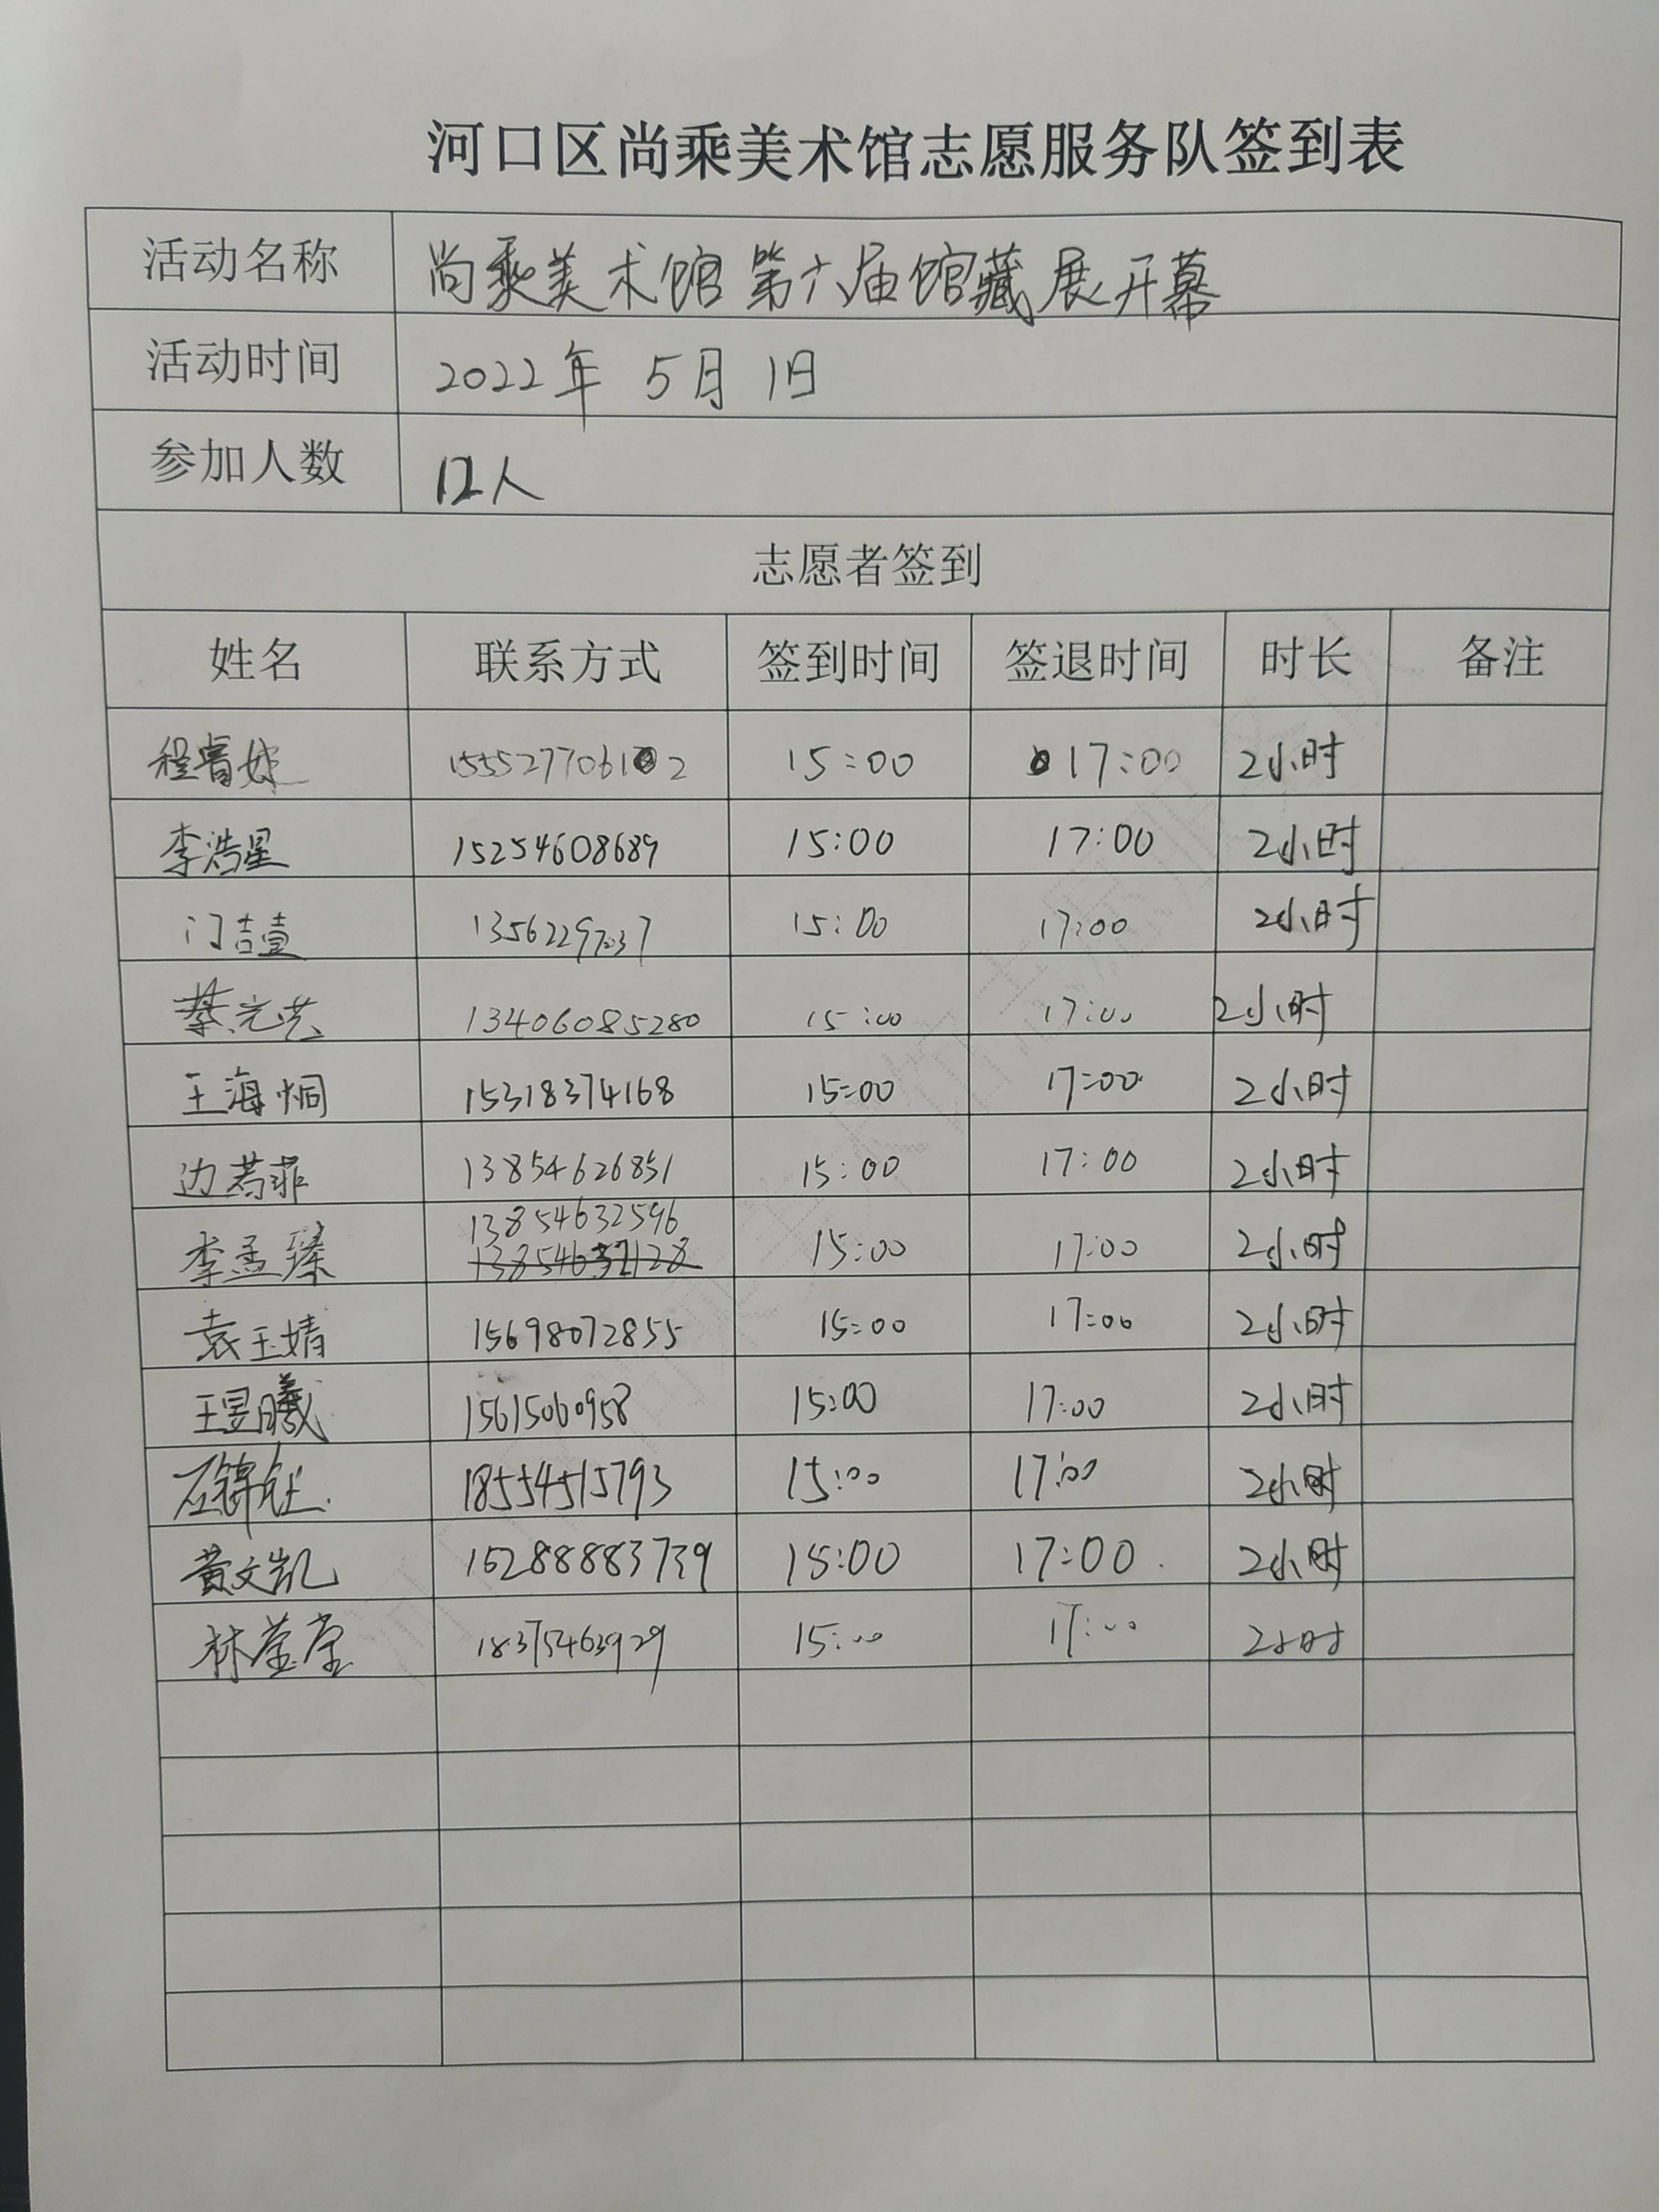 河口区尚乘美术馆志愿服务队签到表
活动名称 尚乘美术馆第六届馆藏展开幕
活动时间 2022年 5月 1日
参加人数 12人
志愿者签到
姓名 联系方式 签到时间 签退时间 时长 备注
程睿 15:00 17:00 2小时
李浩星 15254608689 15:00 17:00 2小时
门吉壹 15:00 17:00 2小时
蔡元芸 13406085280 15:00 17:00 2小时
王海恫 15318374168 15:00 17:00 2小时
边若菲 13854626851 15:00 17:00 2小时
13854632596
李孟臻 15:00 17:00 2小时
袁玉婧 15698072855 15:00 17:00 2小时
王昱曦 15615060958 15:00 17:00 2小时
石锦钰 18554515793 15:00 17:00 2小时
黄文凯 15288883739 15:00 17:00 2小时
林莹莹 18375463929 15:00 17:00 2小时